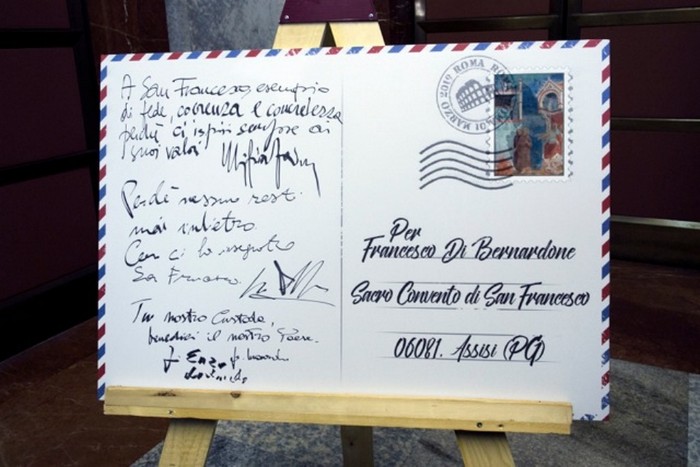 A San Francesco, esempio
di fede, coerenza e concretezza
perché ci ispiri sempre ai
suoi valori
Perché nessuno resti
mai indietro.
Come ci ha insegnato
San Francesco
Tu nostro Custode,
benedici il nostro Paese.
fr. Enzo
ROMA
01 MARZO 2019
Per
Francesco Di Bernardone
Sacro Convento di San Francesco
06081. Assisi (PG)